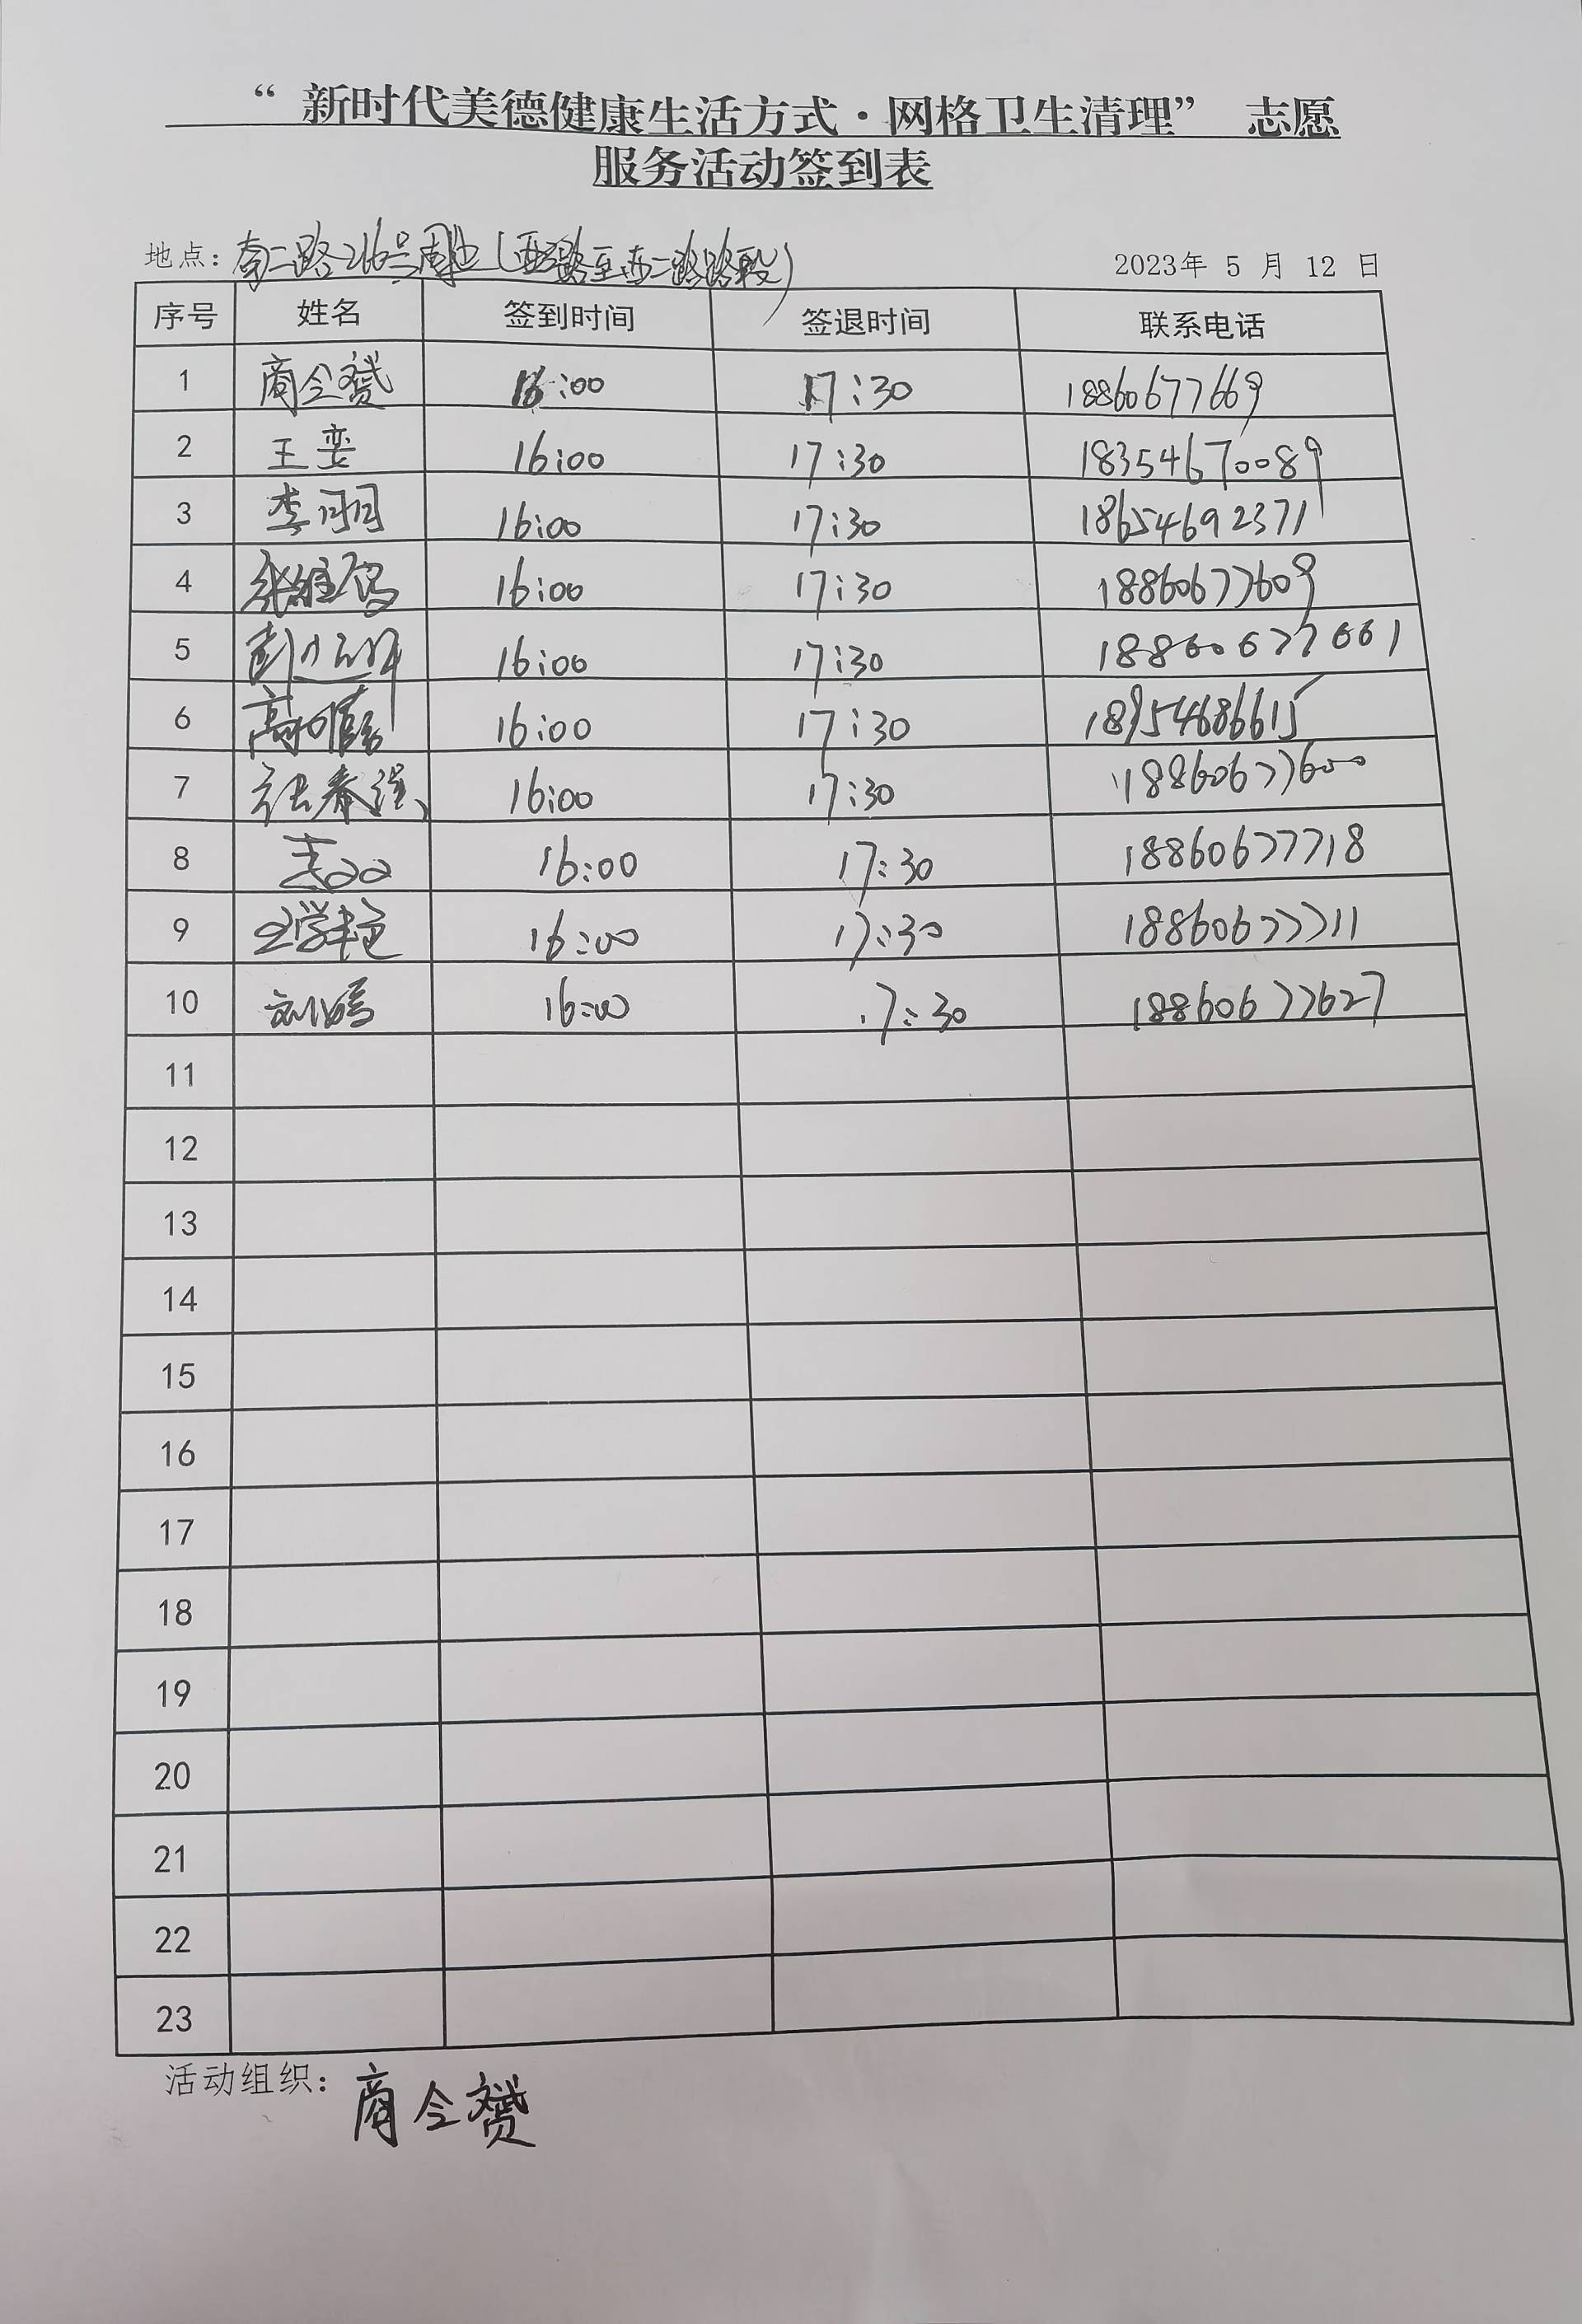 “ 新时代美德健康生活方式·网格卫生清理” 志愿
服务活动签到表
地点：南二路216号周边（西路至西二路路段）
2023年 5 月 12 日
序号 姓名 签到时间 签退时间 联系电话
1 商令赟 16:00 17:30 18860677669
2 王娈 16:00 17:30 18354670089
3 李明月 16:00 17:30 18654692371
4 16:00 17:30 18860677609
5 16:00 17:30 18860677661
6 高 16:00 17:30 18954686615
7 张春 16:00 17:30 18860677600
8 16:00 17:30 18860677718
9 王学艳 16:00 17:30 18860677711
10 刘婷 16:00 17:30 18860677627
11
12
13
14
15
16
17
18
19
20
21
22
23
活动组织：商令赟